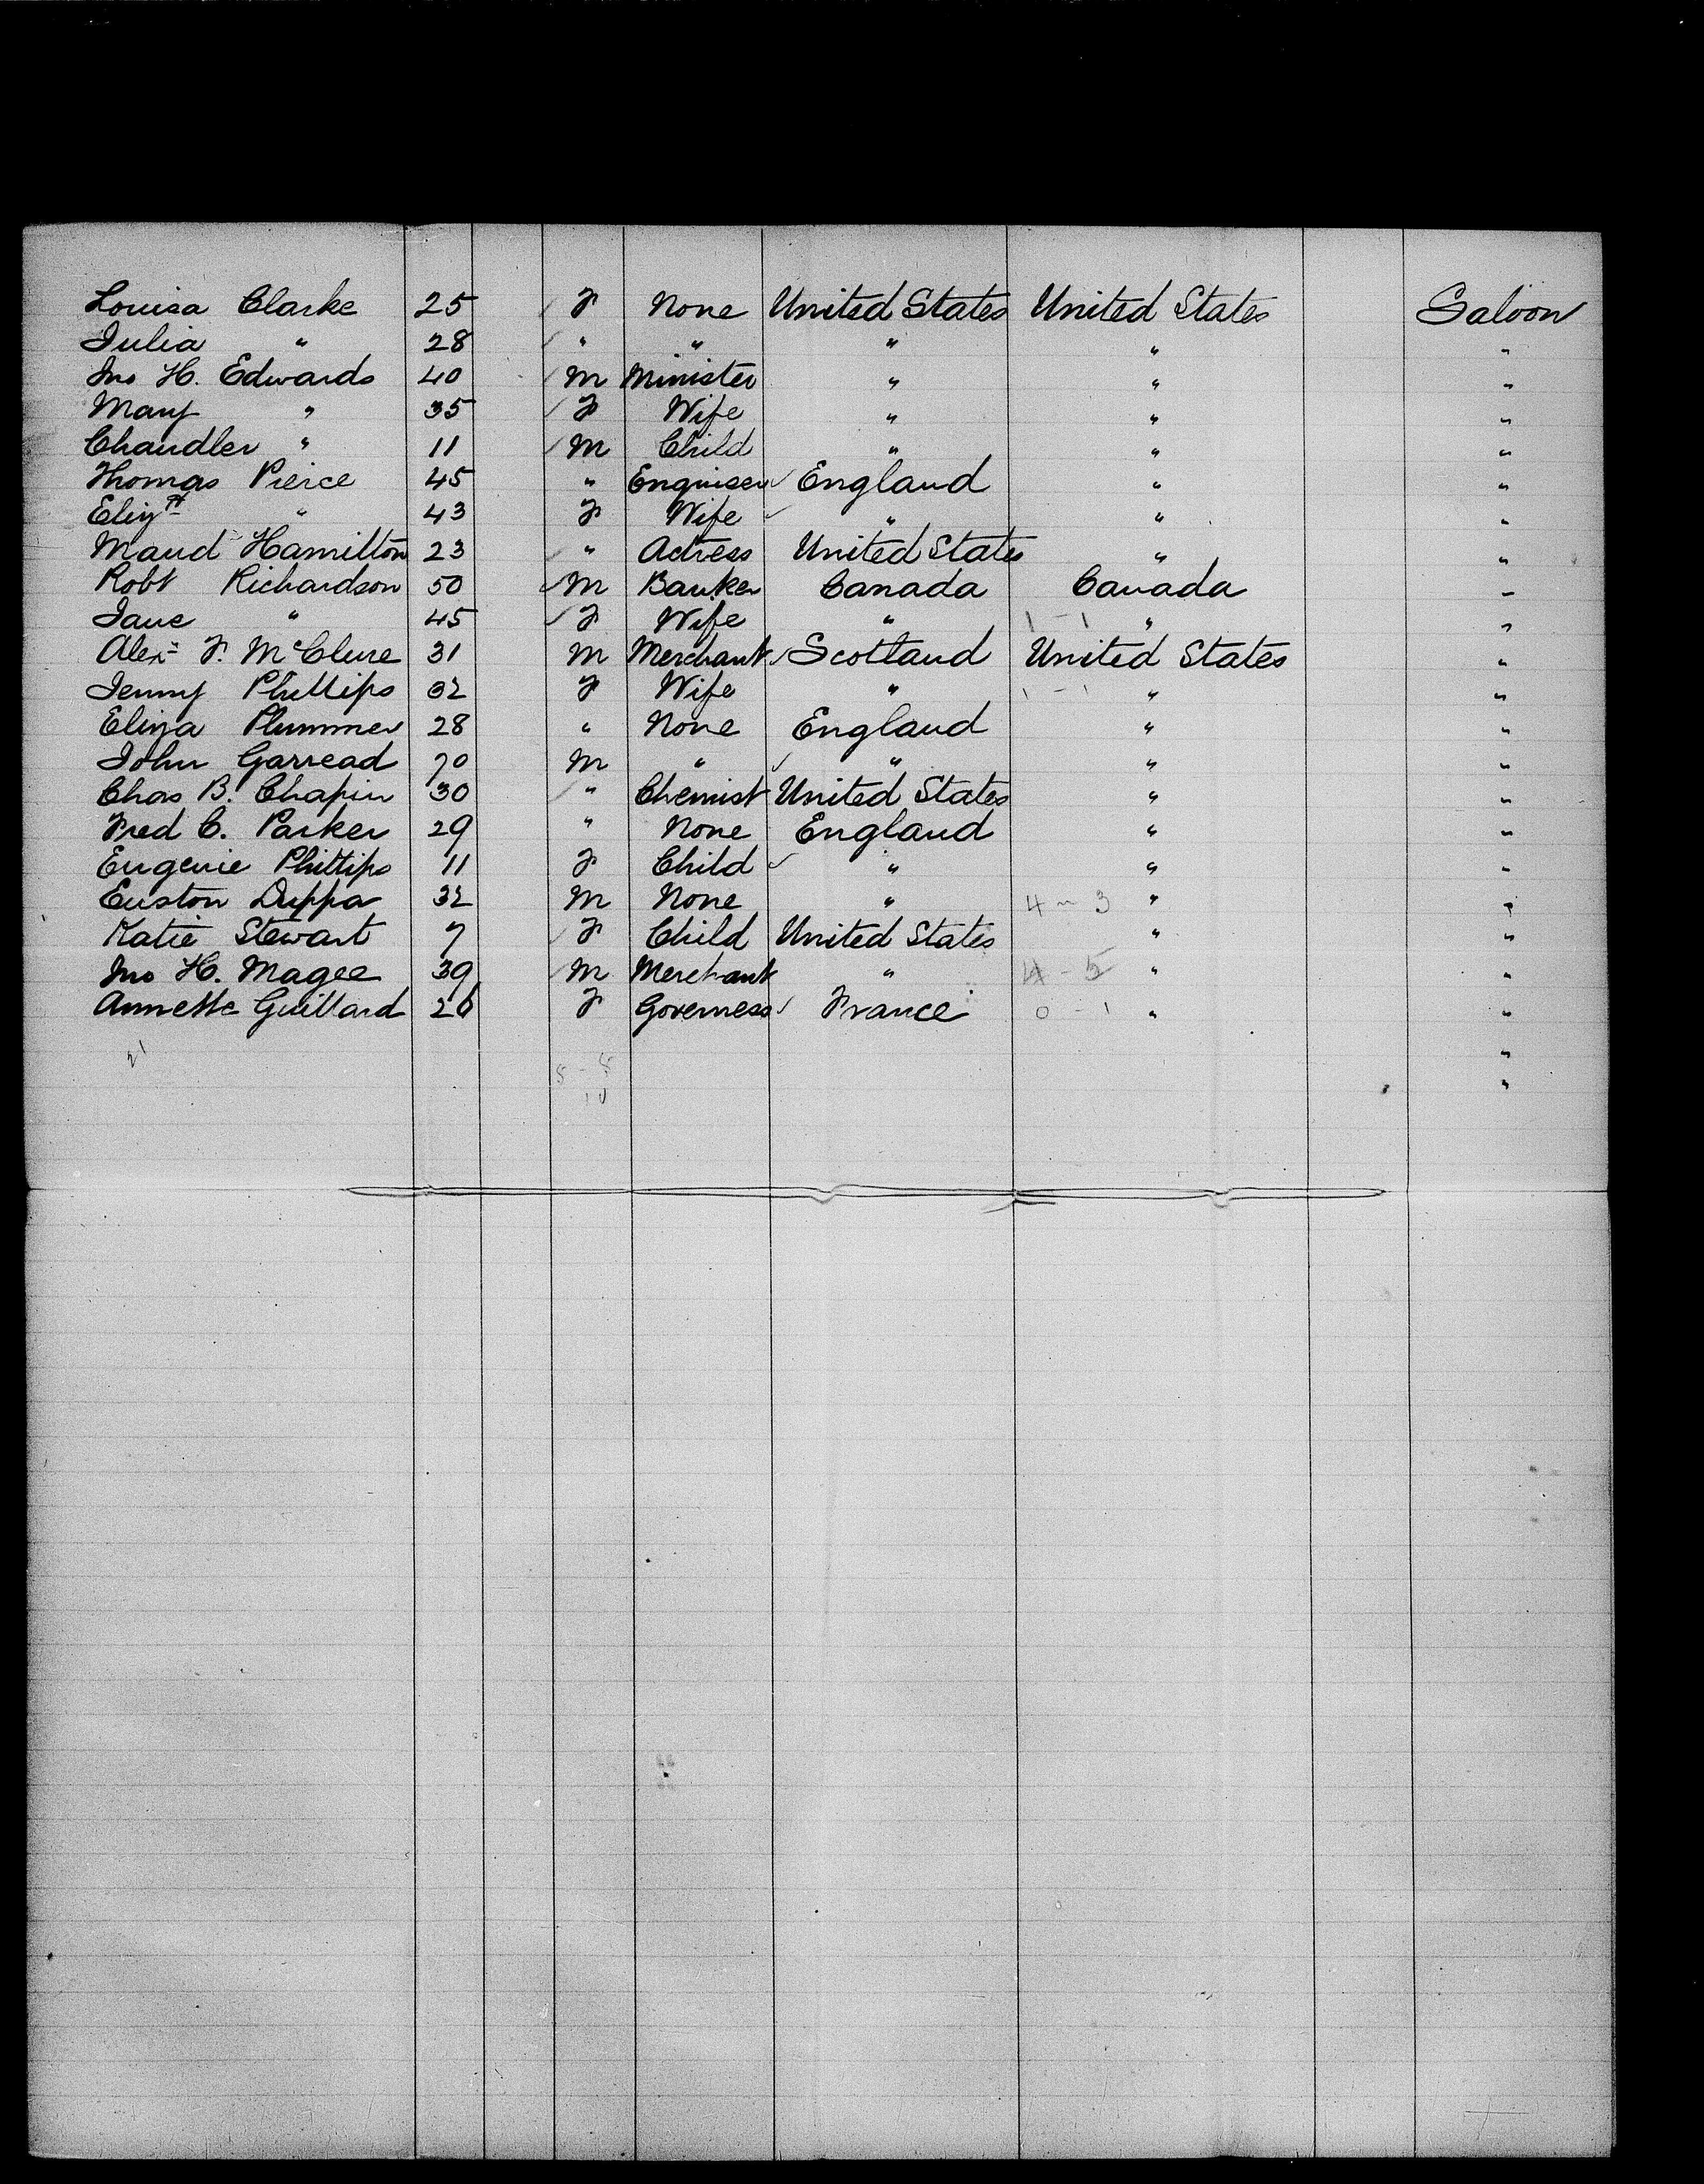 Louisa Clarke 25 F None United States United States Saloon
Julia " 28 " " " " "
Jno H. Edwards 40 M Minister " " "
Mary " 35 F Wife " " "
Chandler " 11 M Child " " "
Thomas Pierce 45 " Enquiser England " "
Elizth " 43 F Wife " " "
Maud Hamilton 23 " Actress United States " "
Robt Richardson 50 M Banker Canada Canada "
Jane " 45 F Wife " 1-1 " "
Alexr F. McClure 31 M Merchant Scotland United States "
Jenny Phillips 32 F Wife " 1-1 " "
Eliza Plummer 28 " None England " "
John Garread 70 M " " " "
Chas B. Chapin 30 " Chemist United States " "
Fred C. Parker 29 " None England " "
Eugenie Phillips 11 F Child " " "
Euston Duppa 32 M None " 4-3 " "
Katie Stewart 7 F Child United States " "
Jno H. Magee 39 M Merchant " 4-5 " "
Annette Guillard 26 F Governess France 0-1 " "
21 "
5-5 "
10